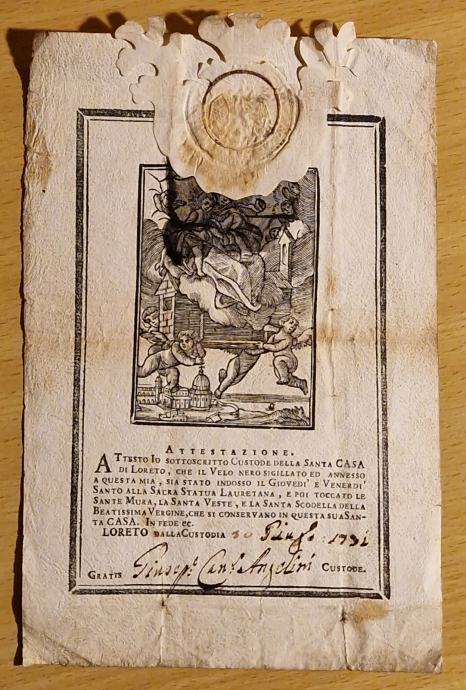 ATTESTAZIONE.
ATTESTO IO SOTTOSCRITTO CUSTODE DELLA SANTA CASA
DI LORETO, CHE IL VELO NERO SIGILLATO ED ANNESSO
A QUESTA MIA, SIA STATO INDOSSO IL GIOVEDI' E VENERDI'
SANTO ALLA SACRA STATUA LAURETANA, E POI TOCCATO LE
SANTE MURA, LA SANTA VESTE, E LA SANTA SCODELLA DELLA
BEATISSIMA VERGINE, CHE SI CONSERVANO IN QUESTA SUA SAN-
TA CASA. IN FEDE ec.
LORETO DALLA CUSTODIA
GRATIS Giusep.e Can.o Angelini CUSTODE.